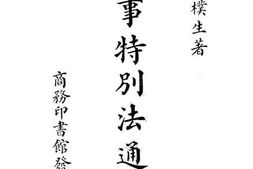 樸生著
事特別法通
商務印書館發